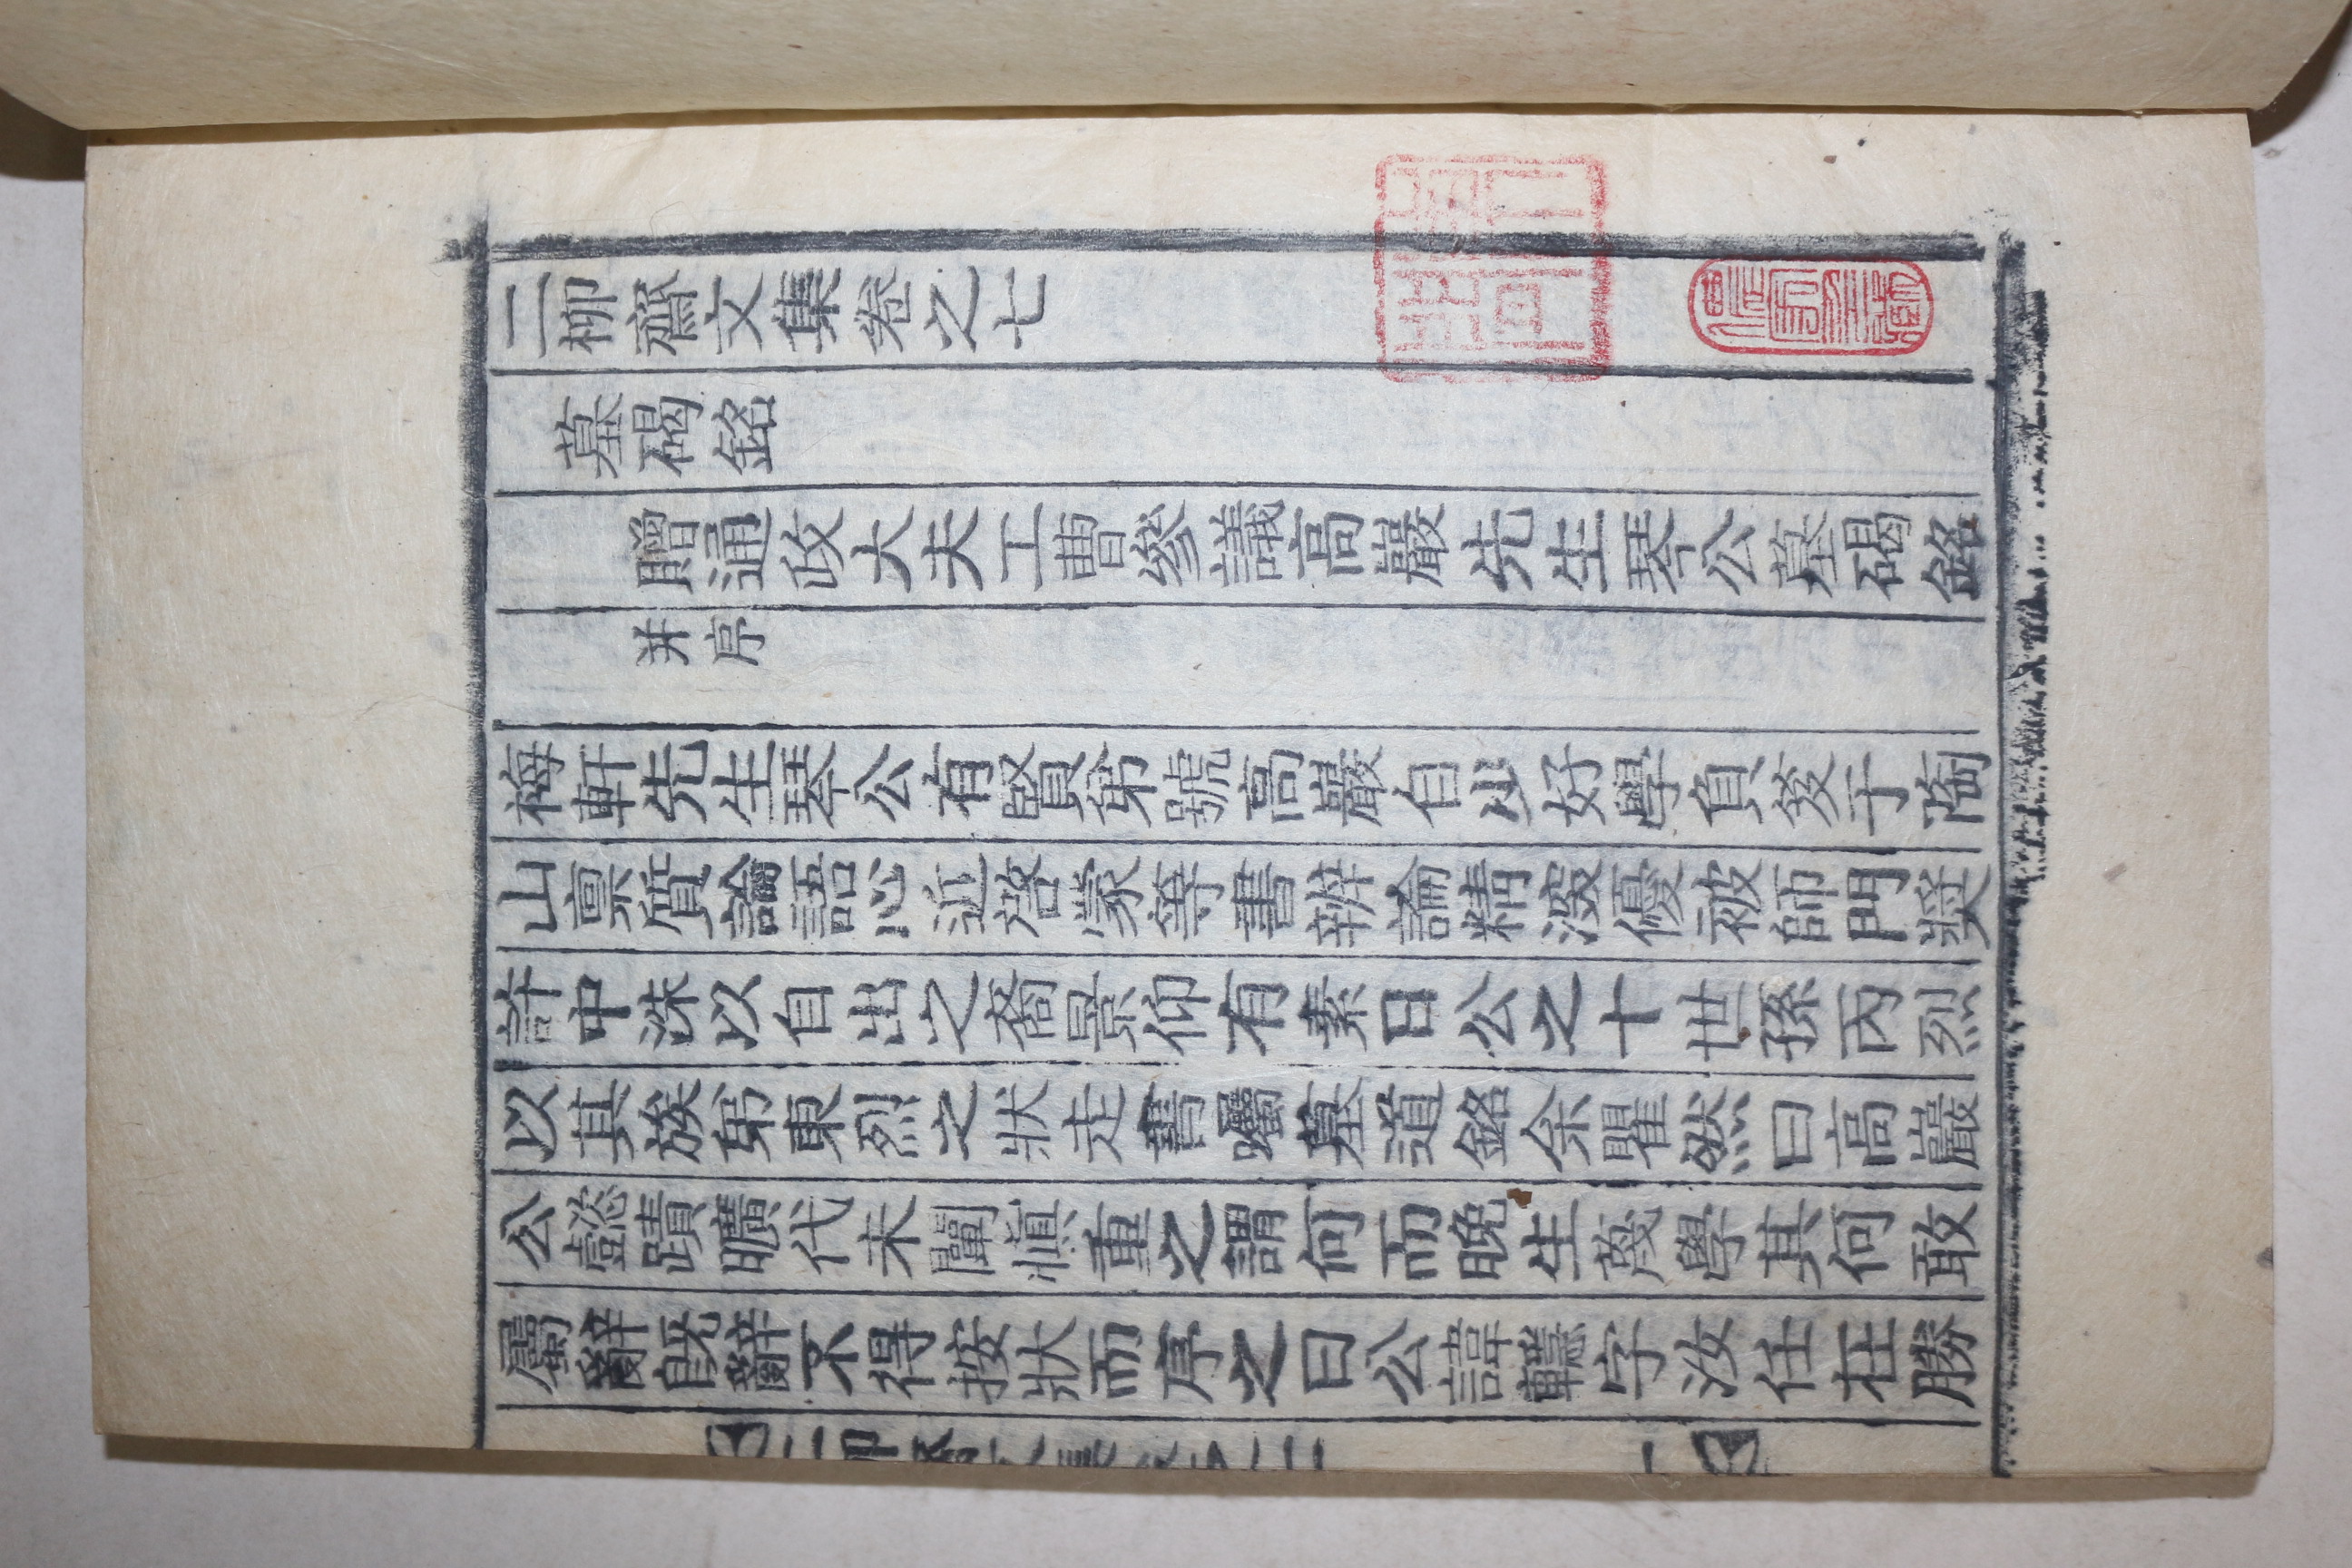 二柳齋文集卷之七
墓碣銘
贈通政大夫工曹參議高巖先生琴公墓碣銘
并序
梅軒先生琴公有賢弟號高巖自少好學負笈于陶
山禀質論語心近啓蒙等書辨論精深優被師門奬
許中洙以自出之裔景仰有素日公之十世孫丙烈
以其族弟東烈之狀走書囑墓道銘余瞿然曰高巖
公懿蹟曠代未闡愼重之謂何而晚生蔑學其何敢
屬辭旣辭不得按狀而序之曰公諱鞾字汝任在勝